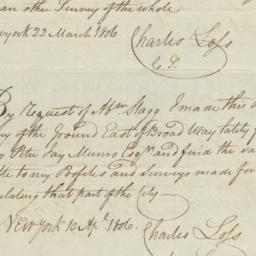 an other Survey of the whole
york 22 March 1806
Charles Loss
C. S.
By Request of Abm. Stagg I made this
y of the Ground East of Broad Way lately
Peter Jay Munro Esqr. and find the
to my Profiles and Surveys made for
ulating that part of the City
New York 10 Apl. 1806.
Charles Loss